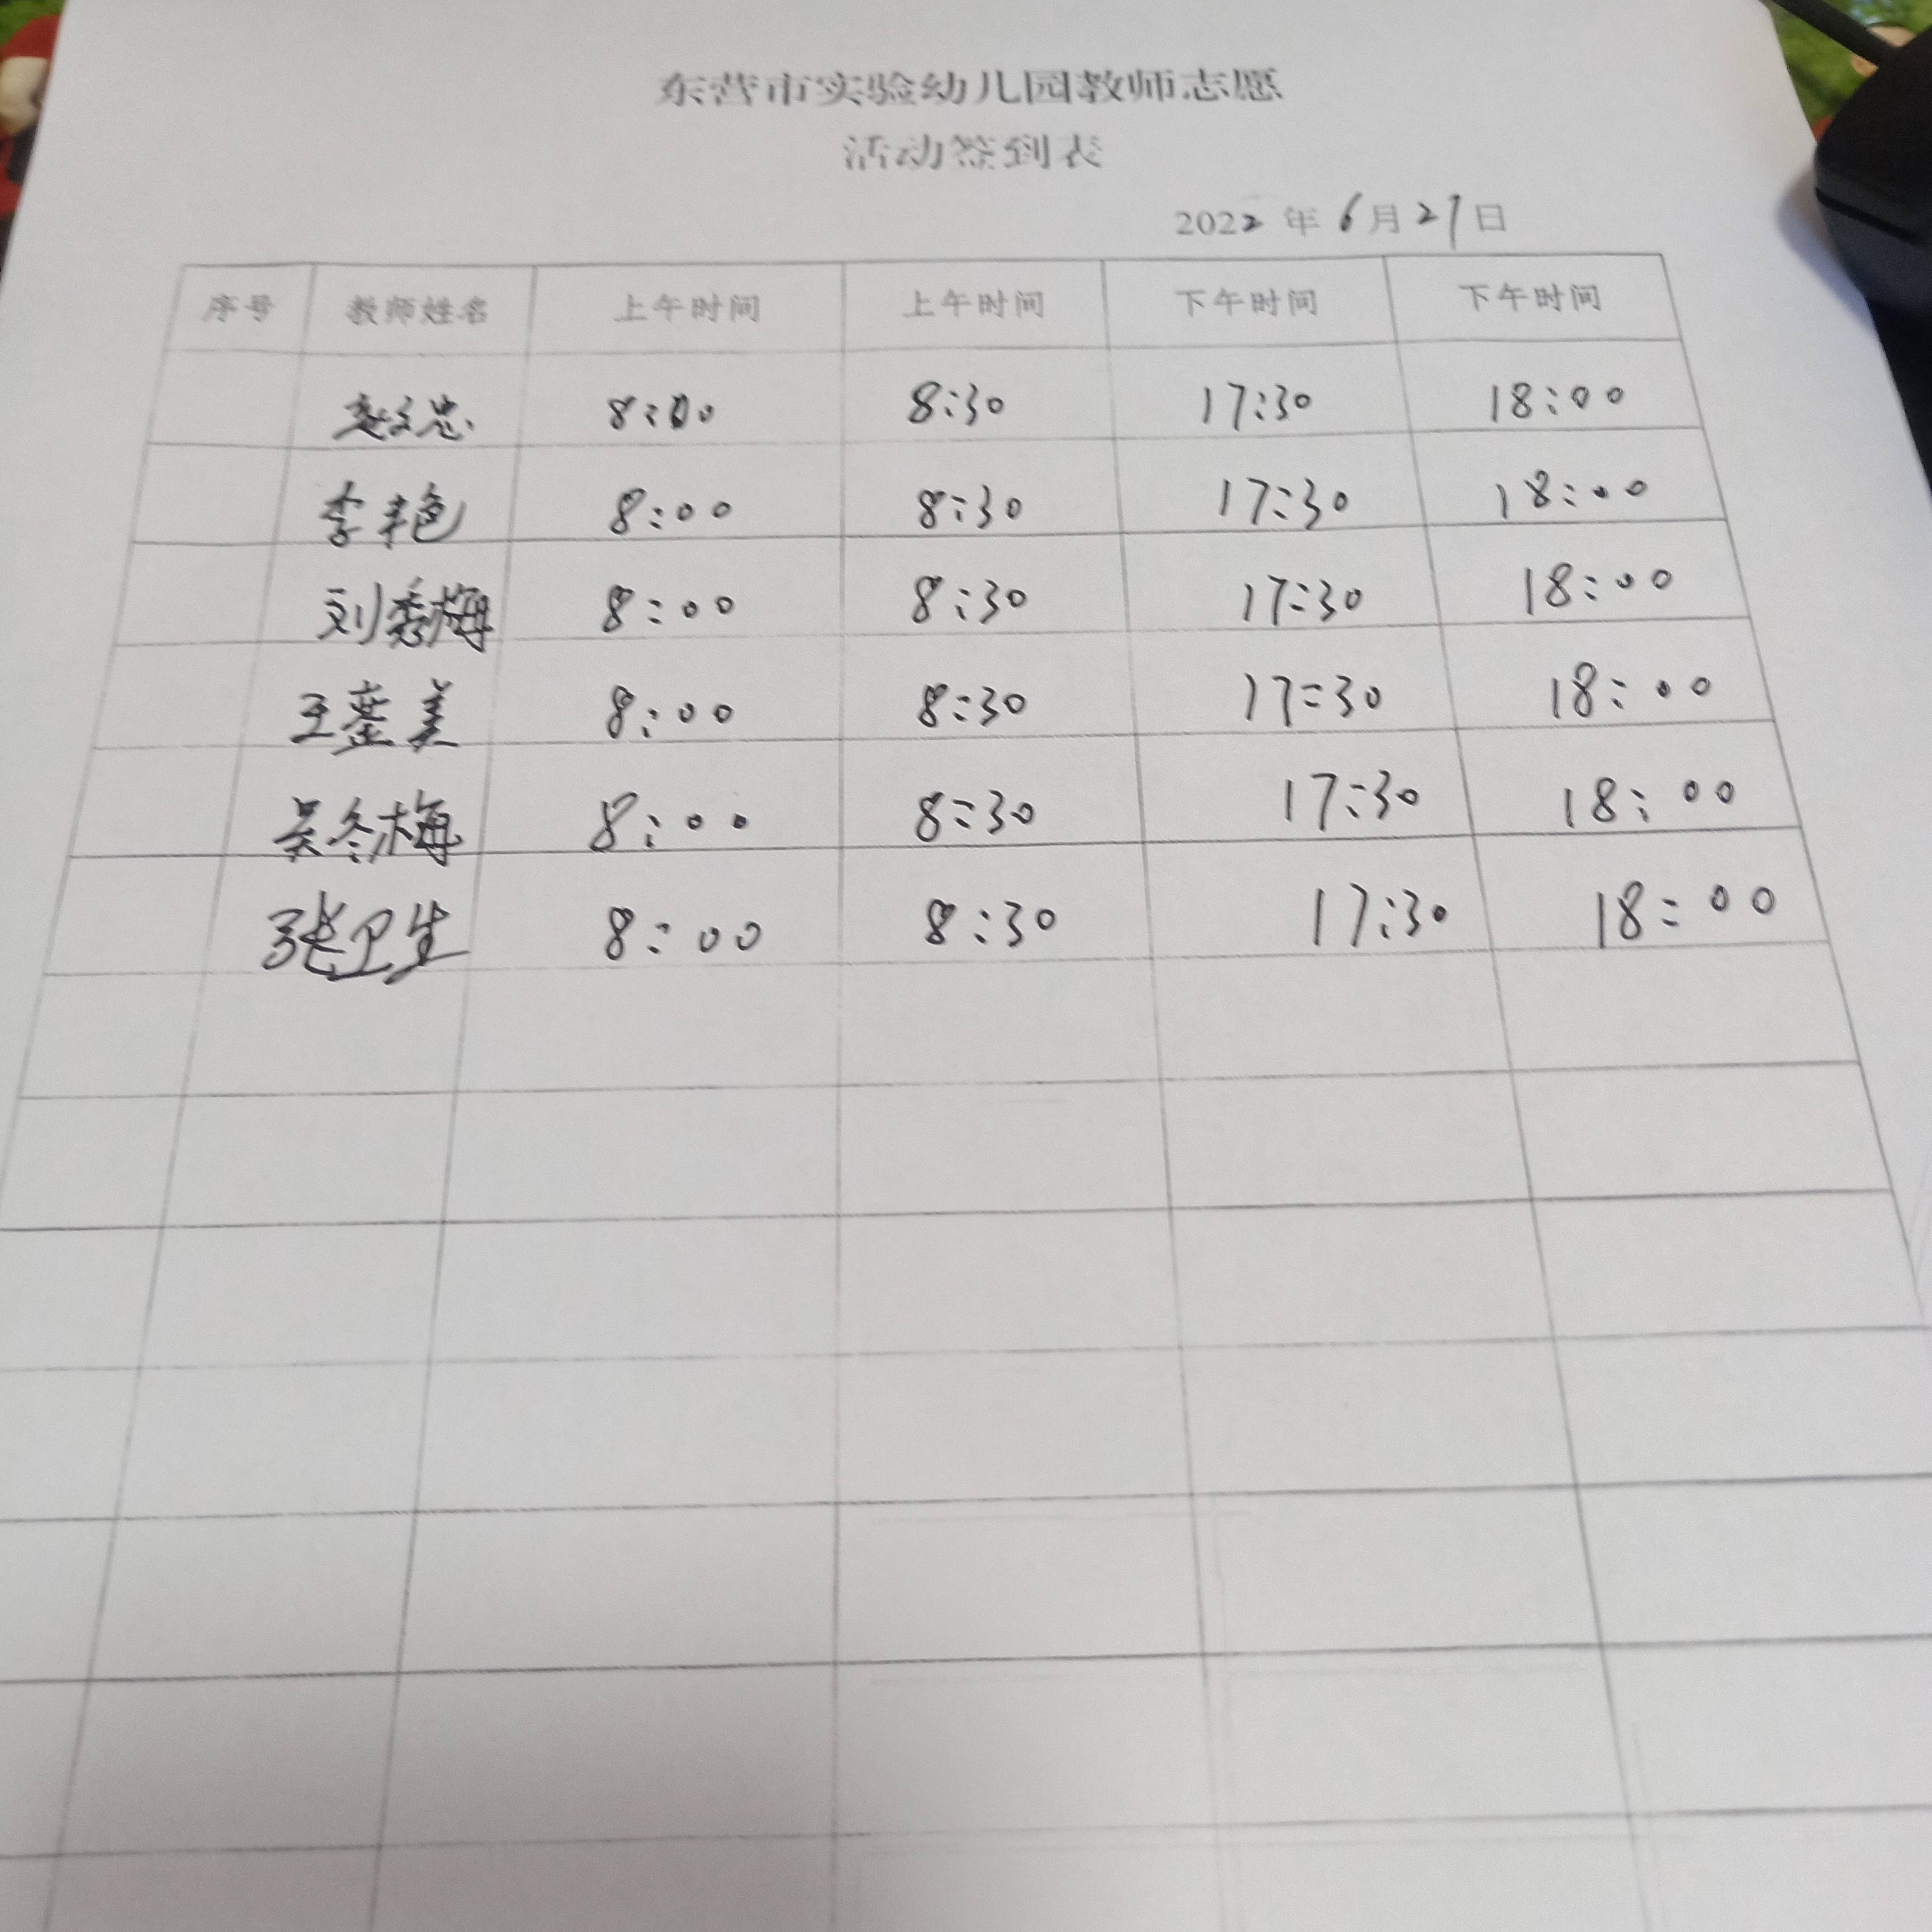 东营市实验幼儿园教师志愿
活动签到表
2022 年 6 月 29 日
序号 教师姓名 上午时间 上午时间 下午时间 下午时间
赵文忠 8:00 8:30 17:30 18:00
李艳 8:00 8:30 17:30 18:00
刘秀梅 8:00 8:30 17:30 18:00
王 美 8:00 8:30 17:30 18:00
吴冬梅 8:00 8:30 17:30 18:00
张卫生 8:00 8:30 17:30 18:00